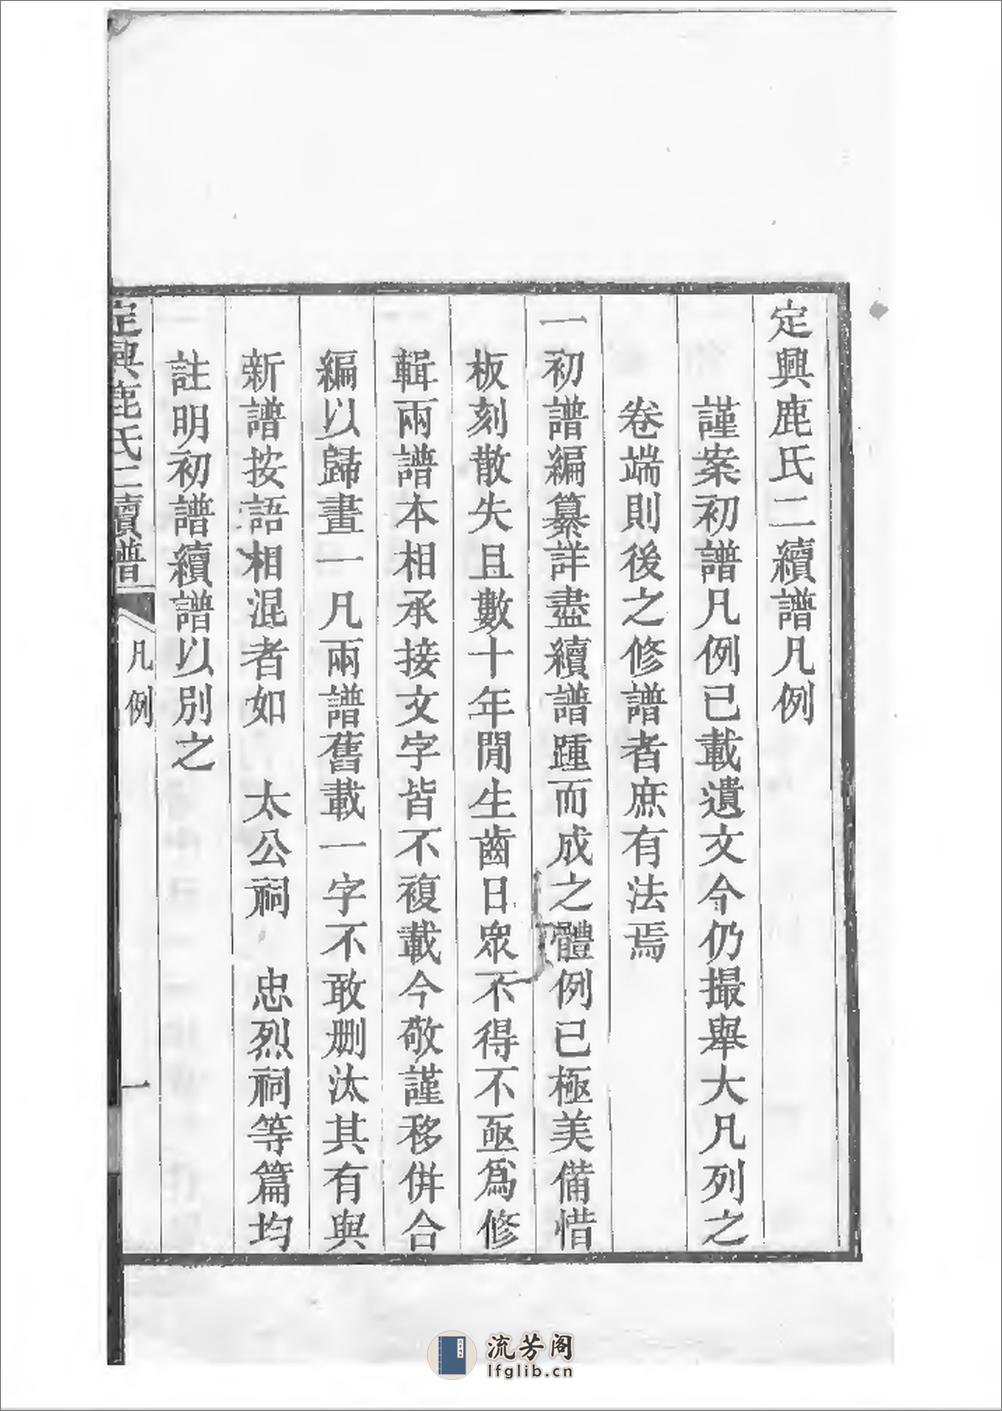 定興鹿氏二續譜凡例
謹案初譜凡例已載遺文今仍撮舉大凡列之
卷端則後之修譜者庶有法焉
一初譜編纂詳盡續譜踵而成之體例已極美備惜
板刻散失且數十年閒生齒日眾不得不亟爲修
輯兩譜本相承接文字皆不複載今敬謹移併合
編以歸畫一凡兩譜舊載一字不敢刪汰其有與
新譜按語相混者如　太公祠　忠烈祠等篇均
註明初譜續譜以別之
定興鹿氏二續譜
凡例
一
流芳阁
lfglib.cn